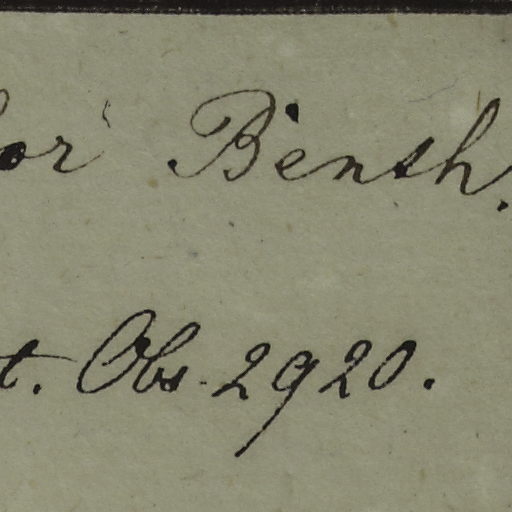 or Benth.
t. Obs. 2920.